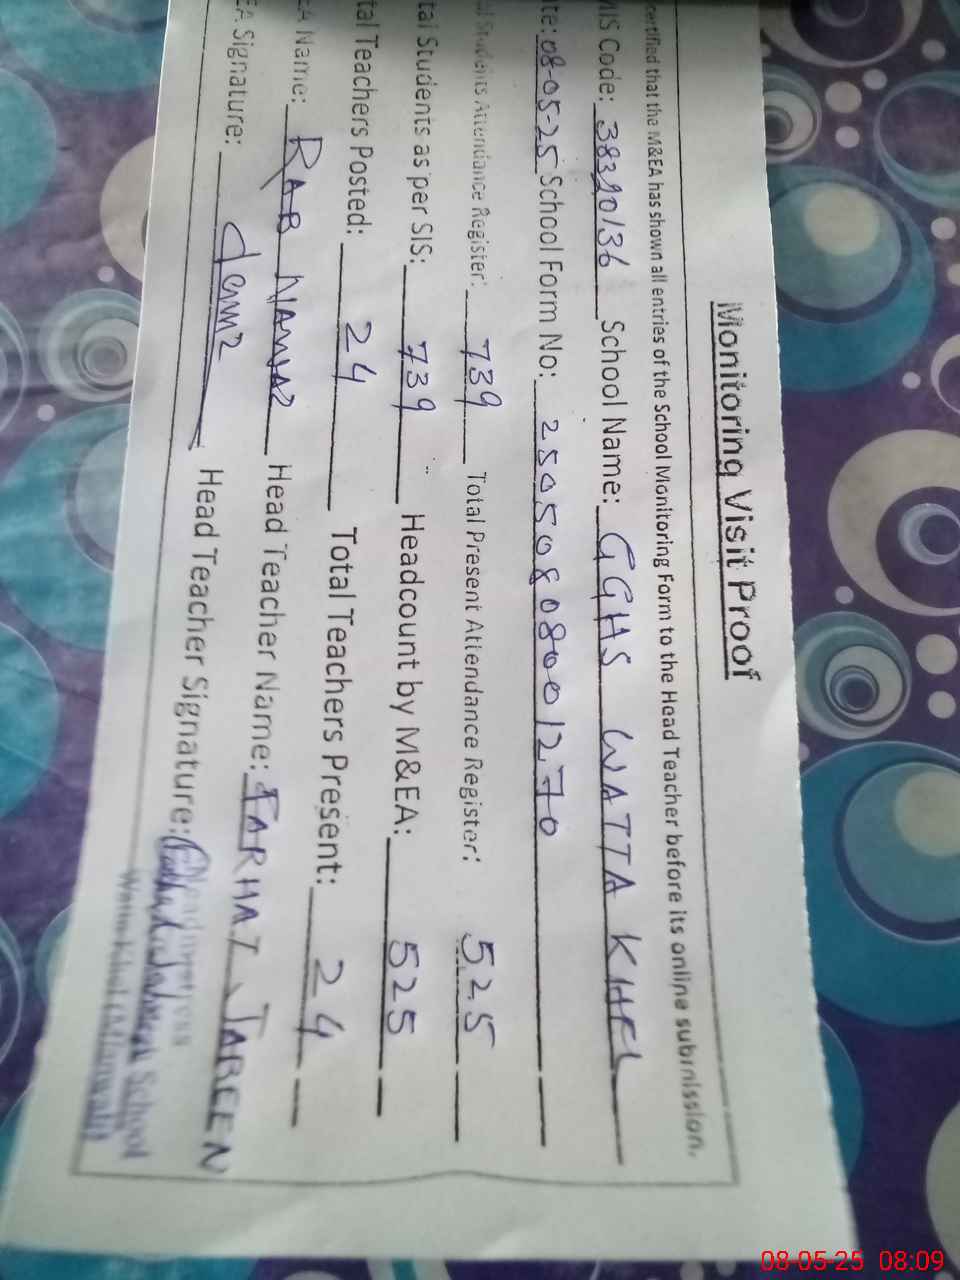 Monitoring Visit Proof
certified that the M&EA has shown all entries of the School Monitoring Form to the Head Teacher before its online submission.
MIS Code: 38320136 School Name: GGHS WATTA KHEL
te: 08-05-25 School Form No: 25050808001270
al Students Attendance Register: 739 Total Present Attendance Register: 525
tal Students as per SIS: 739 Headcount by M&EA: 525
tal Teachers Posted: 24 Total Teachers Present: 24
EA Name: RAB NAWAZ Head Teacher Name: FARHAT JABEEN
EA Signature: Head Teacher Signature:
Headmistress
School
08-05-25 08:09